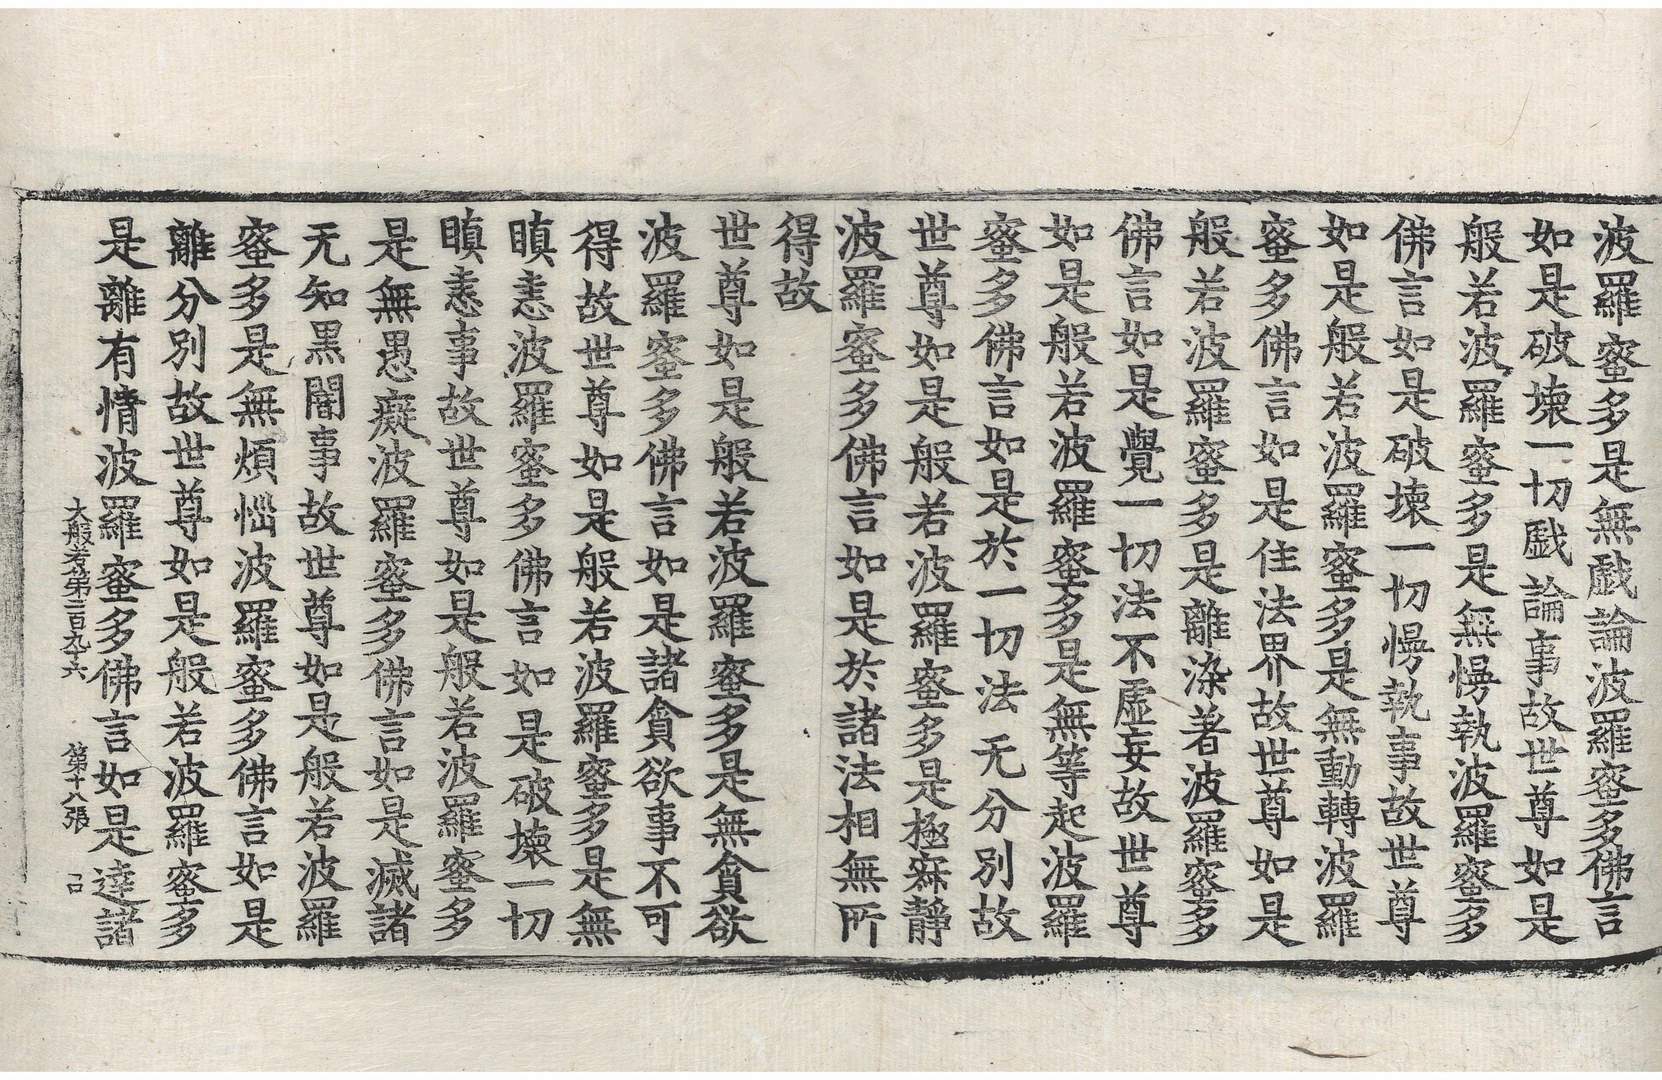 波羅蜜多是無戱論波羅蜜多佛言
如是破壞一切戱論事故世尊如是
般若波羅蜜多是無慢執波羅蜜多
佛言如是破壞一切慢執事故世尊
如是般若波羅蜜多是無動轉波羅
蜜多佛言如是住法界故世尊如是
般若波羅蜜多是離染著波羅蜜多
佛言如是覺一切法不虛妄故世尊
如是般若波羅蜜多是無等起波羅
蜜多佛言如是於一切法无分別故
世尊如是般若波羅蜜多是極寂靜
波羅蜜多佛言如是於諸法相無所
得故
世尊如是般若波羅蜜多是無貪欲
波羅蜜多佛言如是諸貪欲事不可
得故世尊如是般若波羅蜜多是無
瞋恚波羅蜜多佛言如是破壞一切
瞋恚事故世尊如是般若波羅蜜多
是無愚癡波羅蜜多佛言如是滅諸
无知黑闇事故世尊如是般若波羅
蜜多是無煩惱波羅蜜多佛言如是
離分別故世尊如是般若波羅蜜多
是離有情波羅蜜多佛言如是達諸
大般若第二百九十六 第十八張